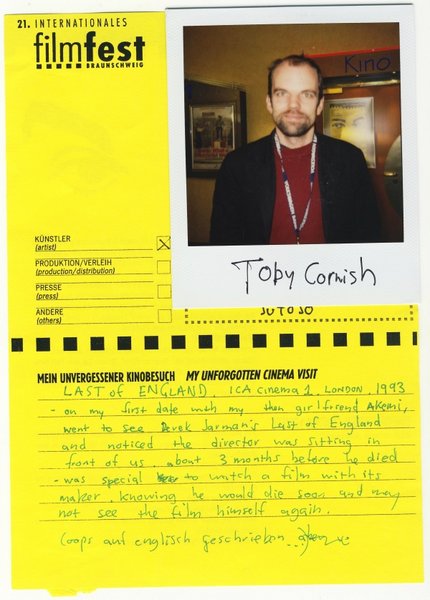 21. INTERNATIONALES
filmfest
BRAUNSCHWEIG
Kino
Toby Cornish
KÜNSTLER
(artist)
PRODUKTION/VERLEIH
(production/distribution)
PRESSE
(press)
ANDERE
(others)
JUTOJO
MEIN UNVERGESSENER KINOBESUCH MY UNFORGOTTEN CINEMA VISIT
LAST of ENGLAND, ICA cinema 1, LONDON, 1993
- on my first date with my then girlfriend Akemi,
went to see Derek Jarman's Last of England
and noticed the director was sitting in
front of us. about 3 months before he died
- was special to watch a film with its
maker, knowing he would die soon and may
not see the film himself again.
(oops auf englisch geschrieben